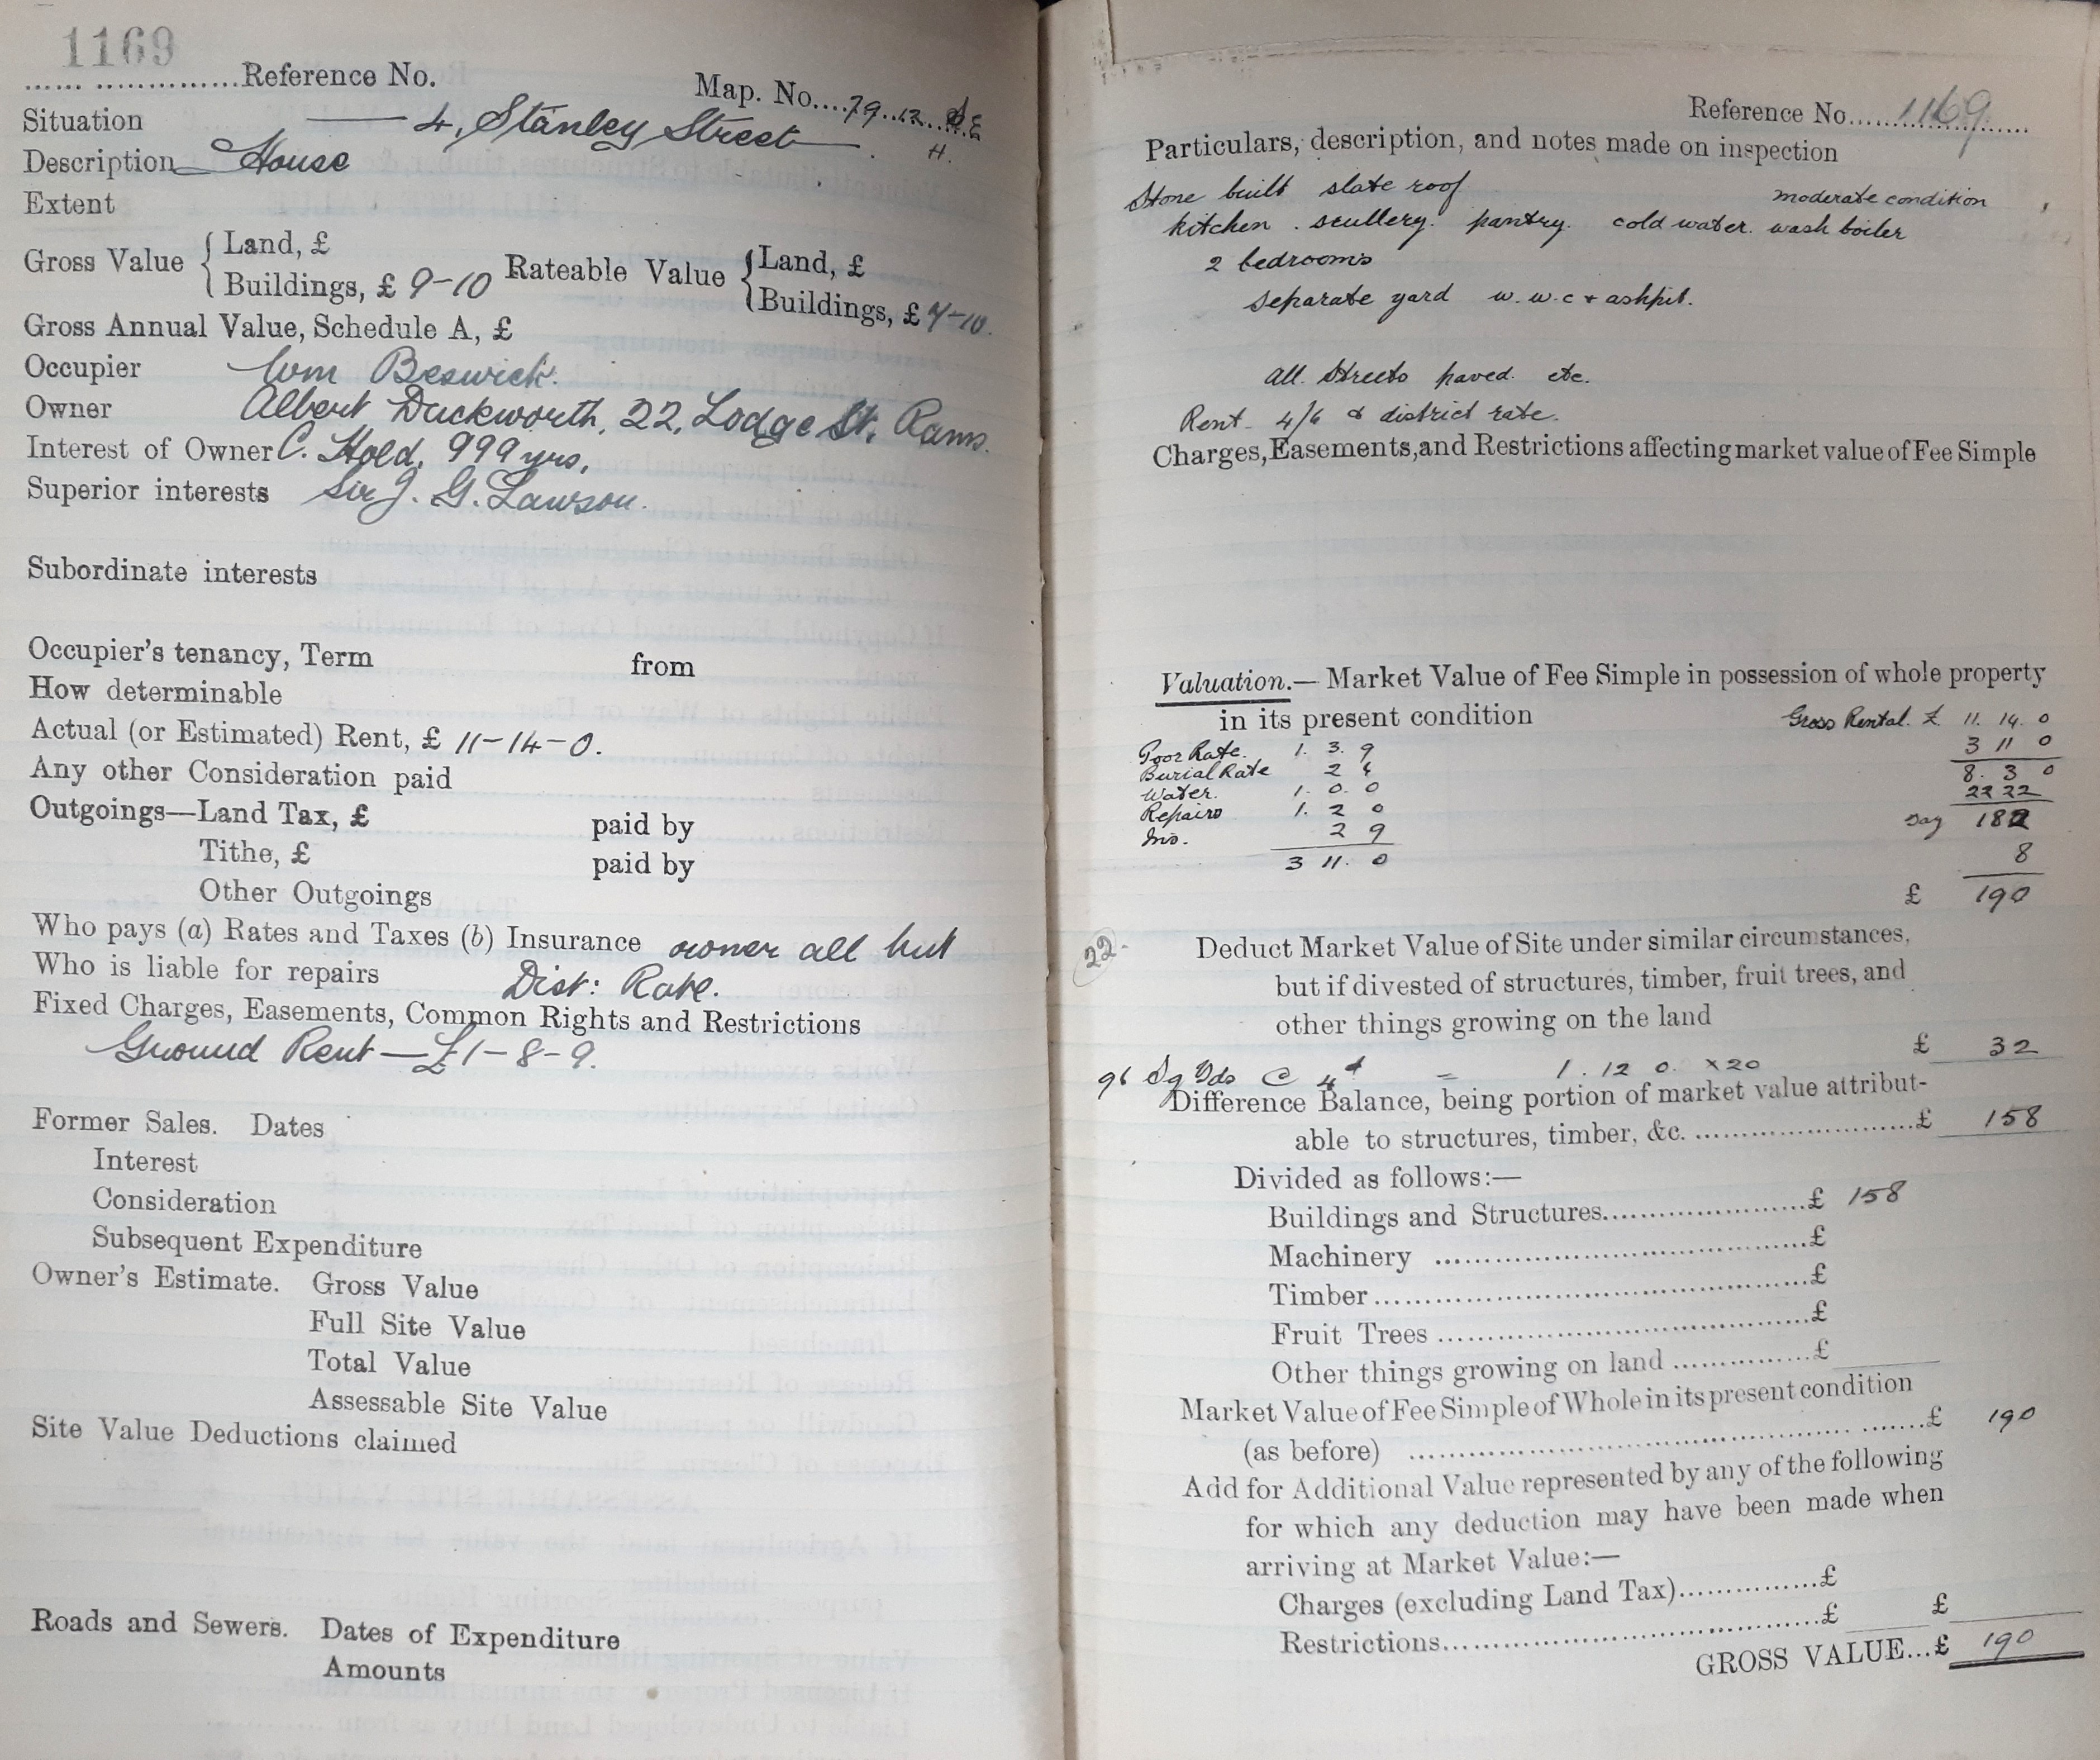 1169
Reference No.
Map. No. 79.12 S.E
H.
Situation — 4, Stanley Street
Description House
Extent
Gross Value { Land, £
Buildings, £ 9-10
Rateable Value { Land, £
Buildings, £ 7-10.
Gross Annual Value, Schedule A, £
Occupier Wm Beswick.
Owner Albert Duckworth, 22, Lodge St. Rams.
Interest of Owner C. Hold, 999 yrs,
Superior interests Sir J. G. Lawson.
Subordinate interests
Occupier's tenancy, Term from
How determinable
Actual (or Estimated) Rent, £ 11-14-0.
Any other Consideration paid
Outgoings—Land Tax, £ paid by
Tithe, £ paid by
Other Outgoings
Who pays (a) Rates and Taxes (b) Insurance owner all but
Who is liable for repairs Dist: Rate.
Fixed Charges, Easements, Common Rights and Restrictions
Ground Rent — £1-8-9.
Former Sales. Dates
Interest
Consideration
Subsequent Expenditure
Owner's Estimate. Gross Value
Full Site Value
Total Value
Assessable Site Value
Site Value Deductions claimed
Roads and Sewers. Dates of Expenditure
Amounts
Reference No. 1169
Particulars, description, and notes made on inspection
Stone built slate roof moderate condition
kitchen . scullery. pantry. cold water. wash boiler
2 bedrooms
separate yard w.w.c & ashpit.
All Streets paved etc.
Rent 4/6 & district rate.
Charges, Easements, and Restrictions affecting market value of Fee Simple
Valuation.— Market Value of Fee Simple in possession of whole property
in its present condition Gross Rental. £ 11. 14. 0
Poor Rate. 1. 3. 9 3 11 0
Burial Rate 2 6 8. 3 0
Water. 1. 0. 0 22 22
Repairs 1. 2 0 Say 182
Ins. 2 9 8
3 11. 0 £ 190
22
Deduct Market Value of Site under similar circumstances,
but if divested of structures, timber, fruit trees, and
other things growing on the land £ 32
96 Sq Yds @ 4d = 1. 12 0. x20
Difference Balance, being portion of market value attribut-
able to structures, timber, &c. £ 158
Divided as follows:—
Buildings and Structures £ 158
Machinery £
Timber £
Fruit Trees £
Other things growing on land £
Market Value of Fee Simple of Whole in its present condition
(as before) £ 190
Add for Additional Value represented by any of the following
for which any deduction may have been made when
arriving at Market Value:—
Charges (excluding Land Tax) £
Restrictions £ £
GROSS VALUE...£ 190